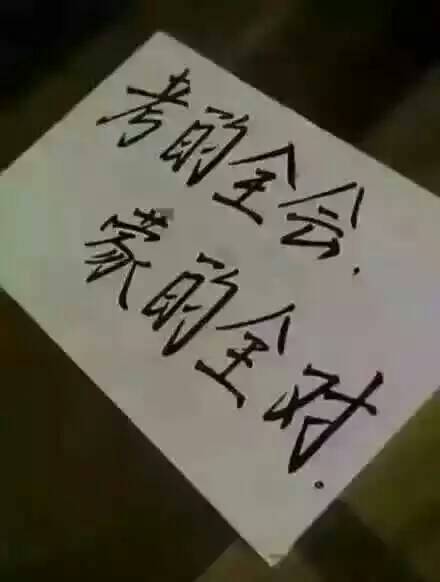 考的全会.
蒙的全对.